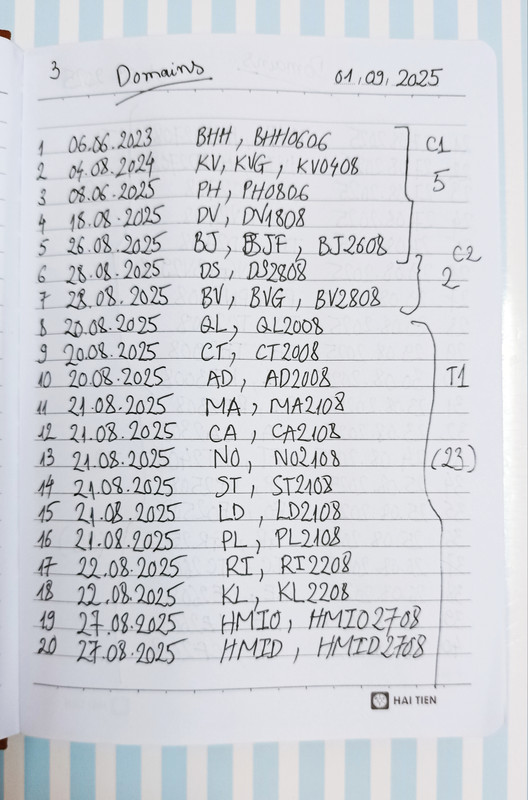 3 Domains 01.09.2025
1 06.06.2023 BHH, BHH0606
2 04.08.2024 KV, KVG, KV0408
3 08.06.2025 PH, PH0806
4 18.08.2025 DV, DV1808
5 26.08.2025 BJ, BJF, BJ2608
C1
5
6 28.08.2025 DS, DS2808
7 28.08.2025 BV, BVG, BV2808
C2
2
8 20.08.2025 QL, QL2008
9 20.08.2025 CT, CT2008
10 20.08.2025 AD, AD2008
11 21.08.2025 MA, MA2108
12 21.08.2025 CA, CA2108
13 21.08.2025 NO, NO2108
14 21.08.2025 ST, ST2108
15 21.08.2025 LD, LD2108
16 21.08.2025 PL, PL2108
17 22.08.2025 RI, RI2208
18 22.08.2025 KL, KL2208
19 27.08.2025 HMIO, HMIO2708
20 27.08.2025 HMID, HMID2708
T1
(23)
HAI TIEN